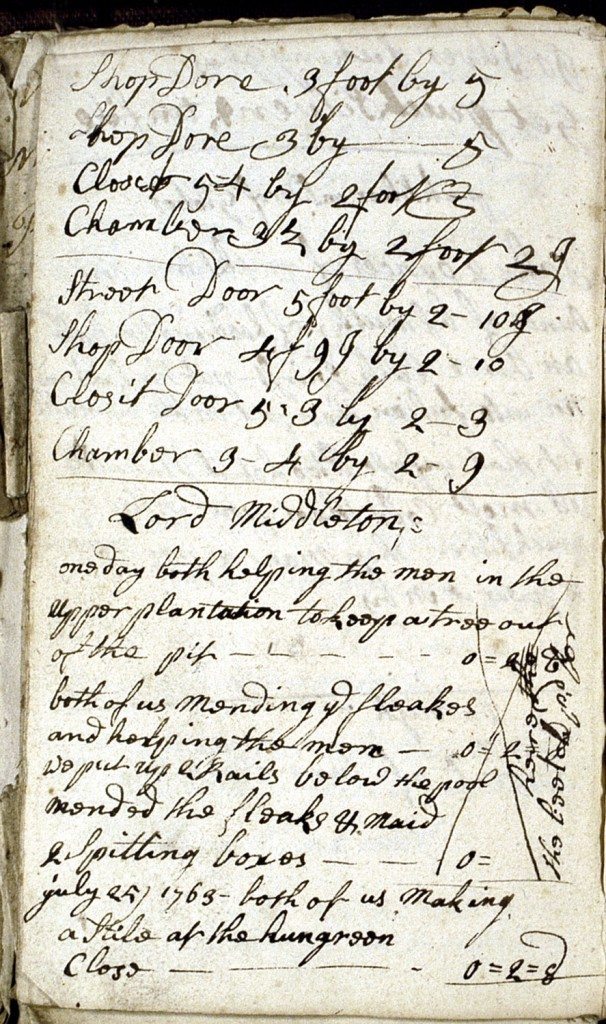 Shop Dore . 3 foot by 5
Shop Dore 3 by — 5
Closet 5-4 by 2 foot
Chamber 3 by 2 foot 2 9
Street Door 5 foot by 2 - 10
Shop Door 4 f 9 by 2 - 10
Closit Door 5 : 3 by 2 - 3
Chamber 3 - 4 by 2 9
Lord Middleton,:
one day both helping the men in the
upper plantation to keep a tree out
of the pit - - - - - 0 =
both of us Mending ye fleakes
and helping the men — 0 = 2
we put up 2 Rails below the pool
mended the fleaks & Maid
2 Spitting boxes — — — 0 =
july 25) 1763 - both of us Making
a Stile at the hungreen
Close — — — - 0 = 2 = 8
the